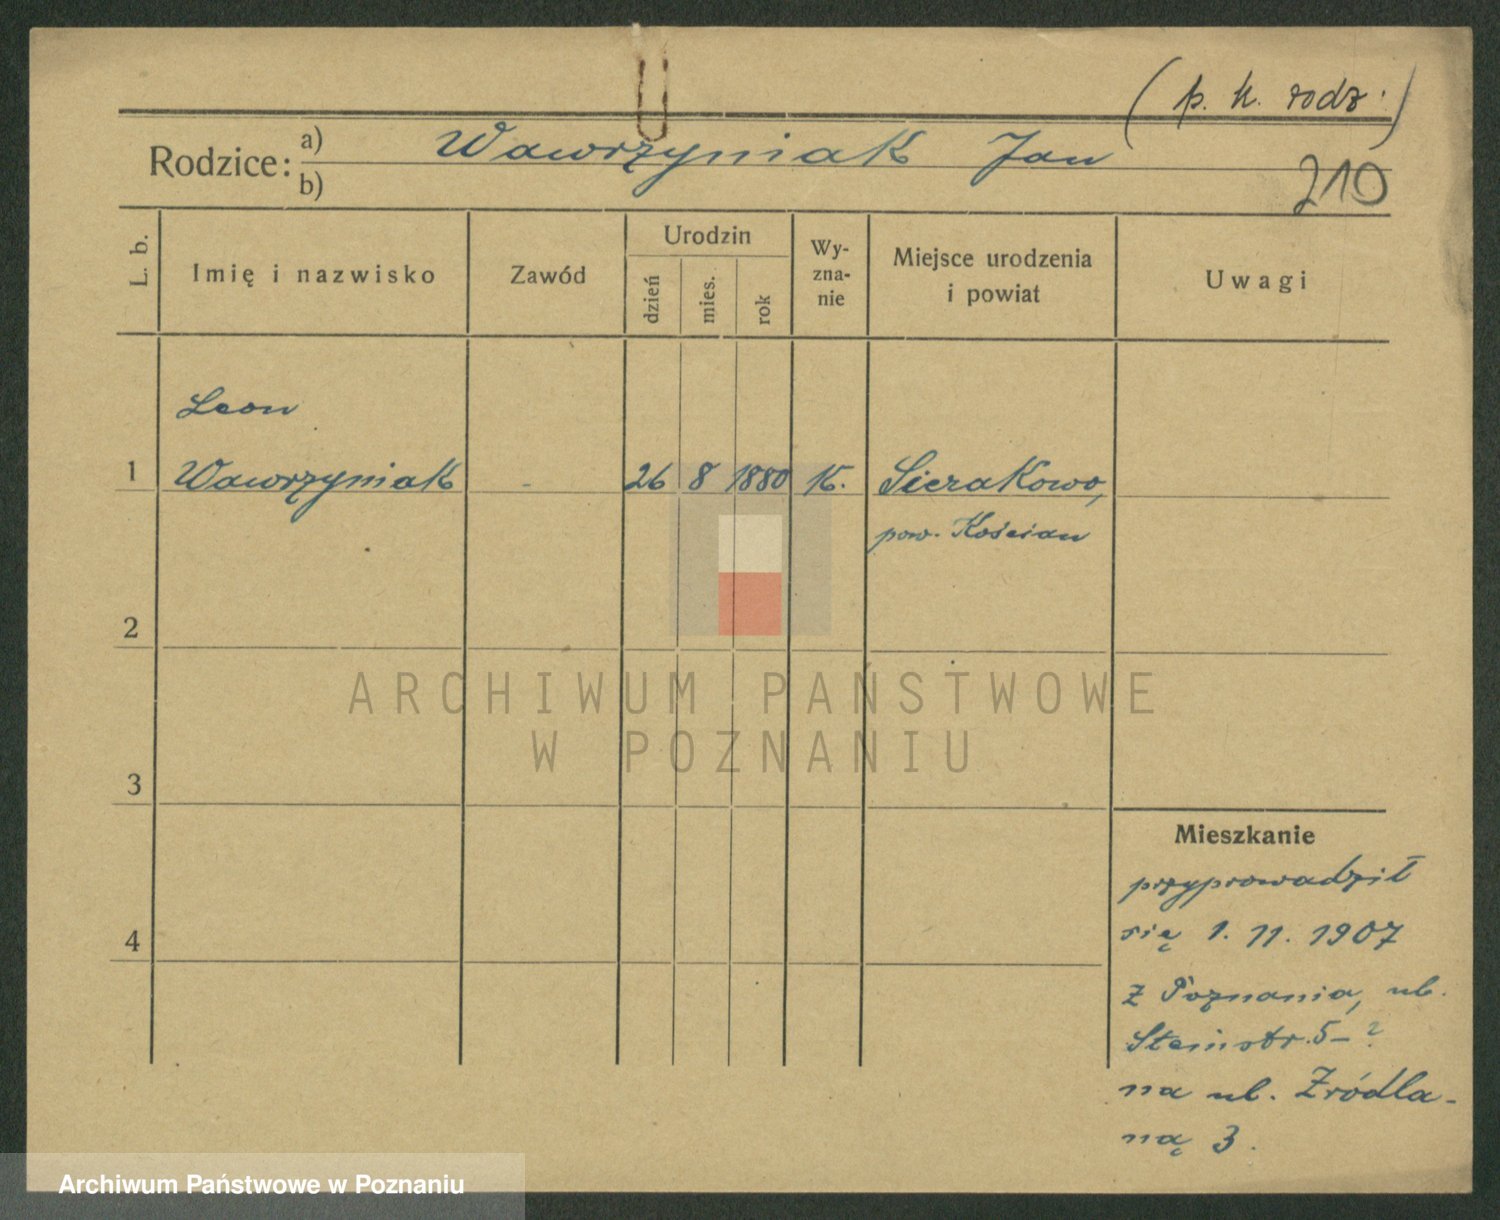 (p. k. rodz.)
Rodzice: a) Wawrzyniak Jan
b)
210
L. b.
Imię i nazwisko
Zawód
Urodzin
dzień
mies.
rok
Wy-
zna-
nie
Miejsce urodzenia
i powiat
Uwagi
Leon
1 Wawrzyniak - 26 8 1880 K. Sierakowo,
pow. Kościan
2
ARCHIWUM PAŃSTWOWE
W POZNANIU
3
Mieszkanie
przyprowadził
4
się 1. 11. 1907
z Poznania, ul.
Steinstr. 5-?
na ul. Źródla-
ną 3.
Archiwum Państwowe w Poznaniu